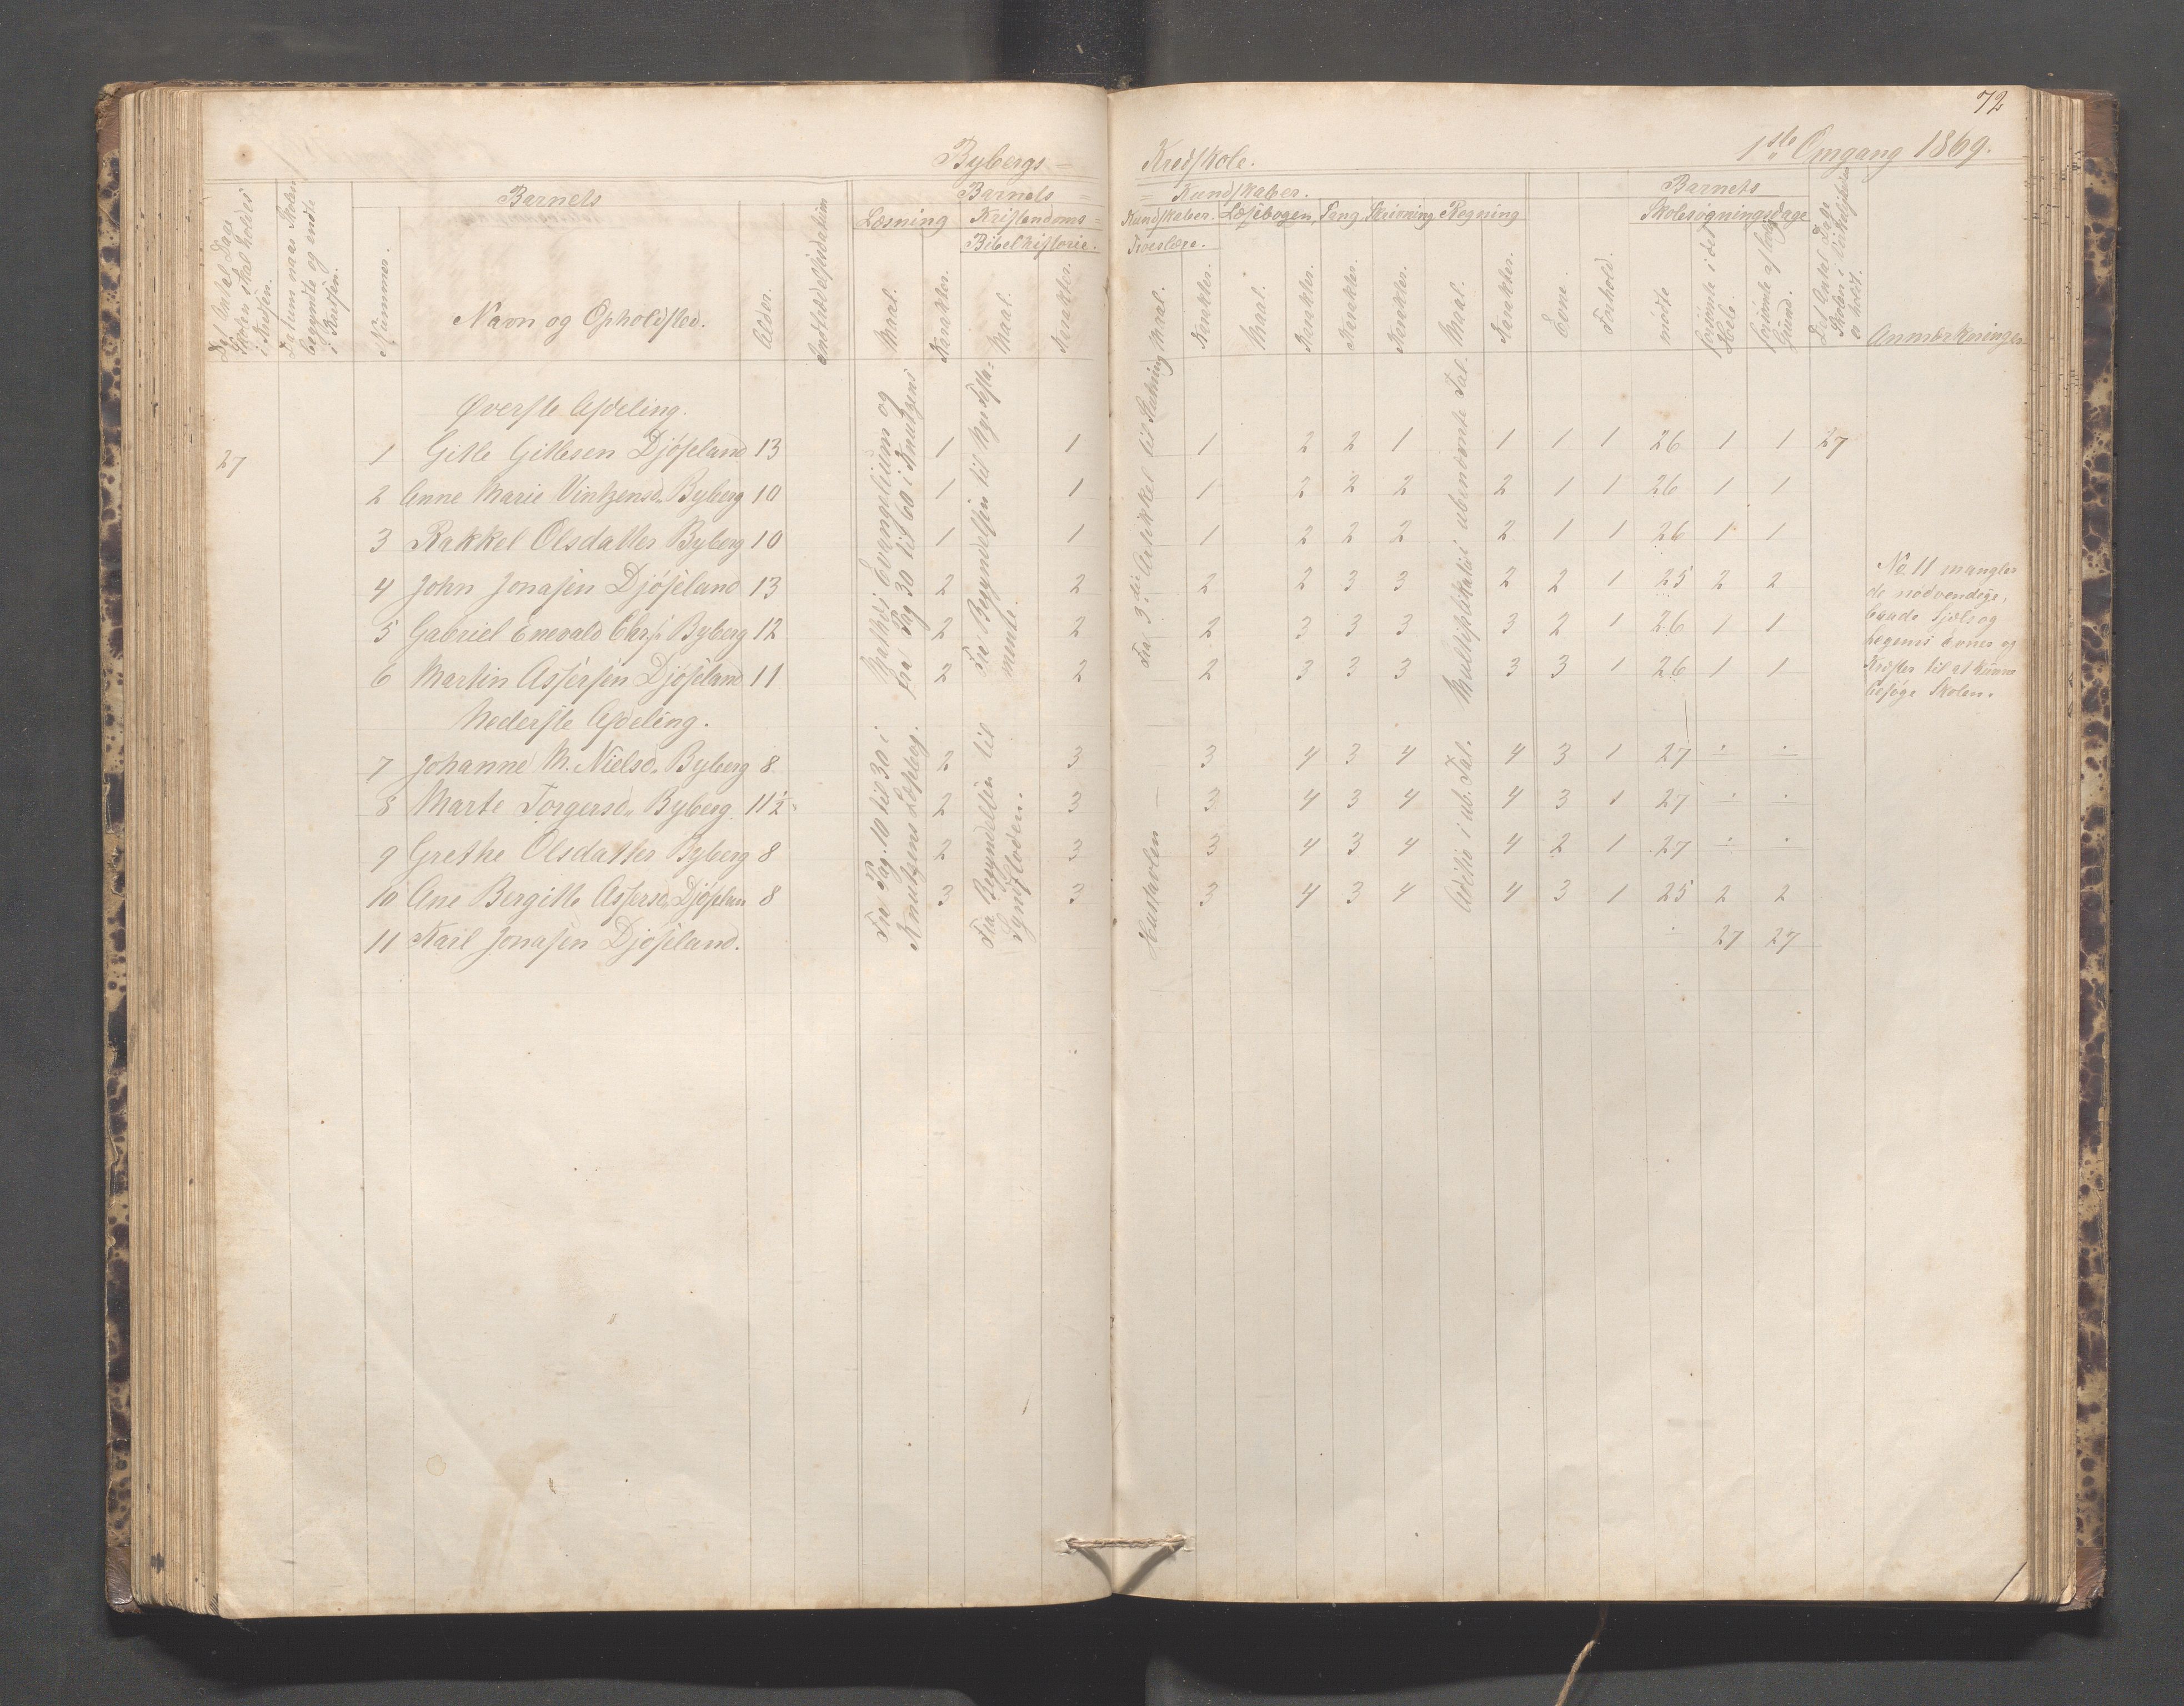 72
Bybergs= Kredsskole. 1ste Omgang 1869.
Det Antal Dage Skolen skal holdes i Kredsen.
Datum naar Skolen begyndte og endte i Kredsen.
Barnets
Nummer.
Navn og Opholdssted.
Alder.
Indtrædelsesdatum
Barnets= =Kundskaber.
Læsning
Maal.
Karakter.
Kristendoms= Kundskaber.
Bibelhistorie.
Maal.
Karakter.
Troeslære.
Maal.
Karakter.
Læsebogen,
Maal.
Karakter.
Sang
Karakter.
Skrivning
Karakter.
Regning
Maal.
Karakter.
Evne.
Forhold.
Barnets
Skolesøgningsdage
mødte
forsømte i det Hele
forsømte af Grund.
Det Antal Dage Skolen i Virkeligheden er holdt.
Anmærkninger
Øverste Afdeling.
27 1 Gitle Gitlesen Djøseland 13 1 1 1 2 2 1 1 1 1 26 1 1 27
2 Anne Marie Vintzensd. Byberg 10 1 1 1 2 2 2 2 1 1 26 1 1
3 Rakkel Olsdatter Byberg 10 1 1 1 2 2 2 2 1 1 26 1 1
4 John Jonasen Djøseland 13 2 2 2 2 3 3 2 2 1 25 2 2
5 Gabriel Enevald Byberg 12 2 2 2 3 3 3 3 2 1 26 1 1
6 Martin Assersen Djøseland 11 2 2 2 3 3 3 3 3 1 26 1 1
Mathæi Evangelium og
fra Pag 30 til 60 i Knutzens
Fra Begyndelsen til Nye Testa=
mente.
Fra 3die Artikkel til Slutning
Multiplikation i ubenævnte Tal.
No. 11 mangler
de nødvendige,
baade Sjæls og
Legems Evner og
Kræfter til at kunne
besøge Skolen.
Nederste Afdeling.
7 Johanne M. Nielsd. Byberg 8 2 3 3 4 3 4 4 3 1 27 ÷ ÷
8 Marte Torgersd. Byberg. 11½ 2 3 3 4 3 4 4 3 1 27 ÷ ÷
9 Grethe Olsdatter Byberg 8 2 3 3 4 3 4 4 2 1 27 ÷ ÷
10 Ane Bergitte Assersd. Djøseland 8 3 3 3 4 3 4 4 3 1 25 2 2
11 Karl Jonasen Djøseland. 27 27
Fra Pag. 10 til 30 i
Knutzens Læsebog.
Fra Begyndelsen til
Syndfloden.
Hustavlen —
Adition i ub. Tal.